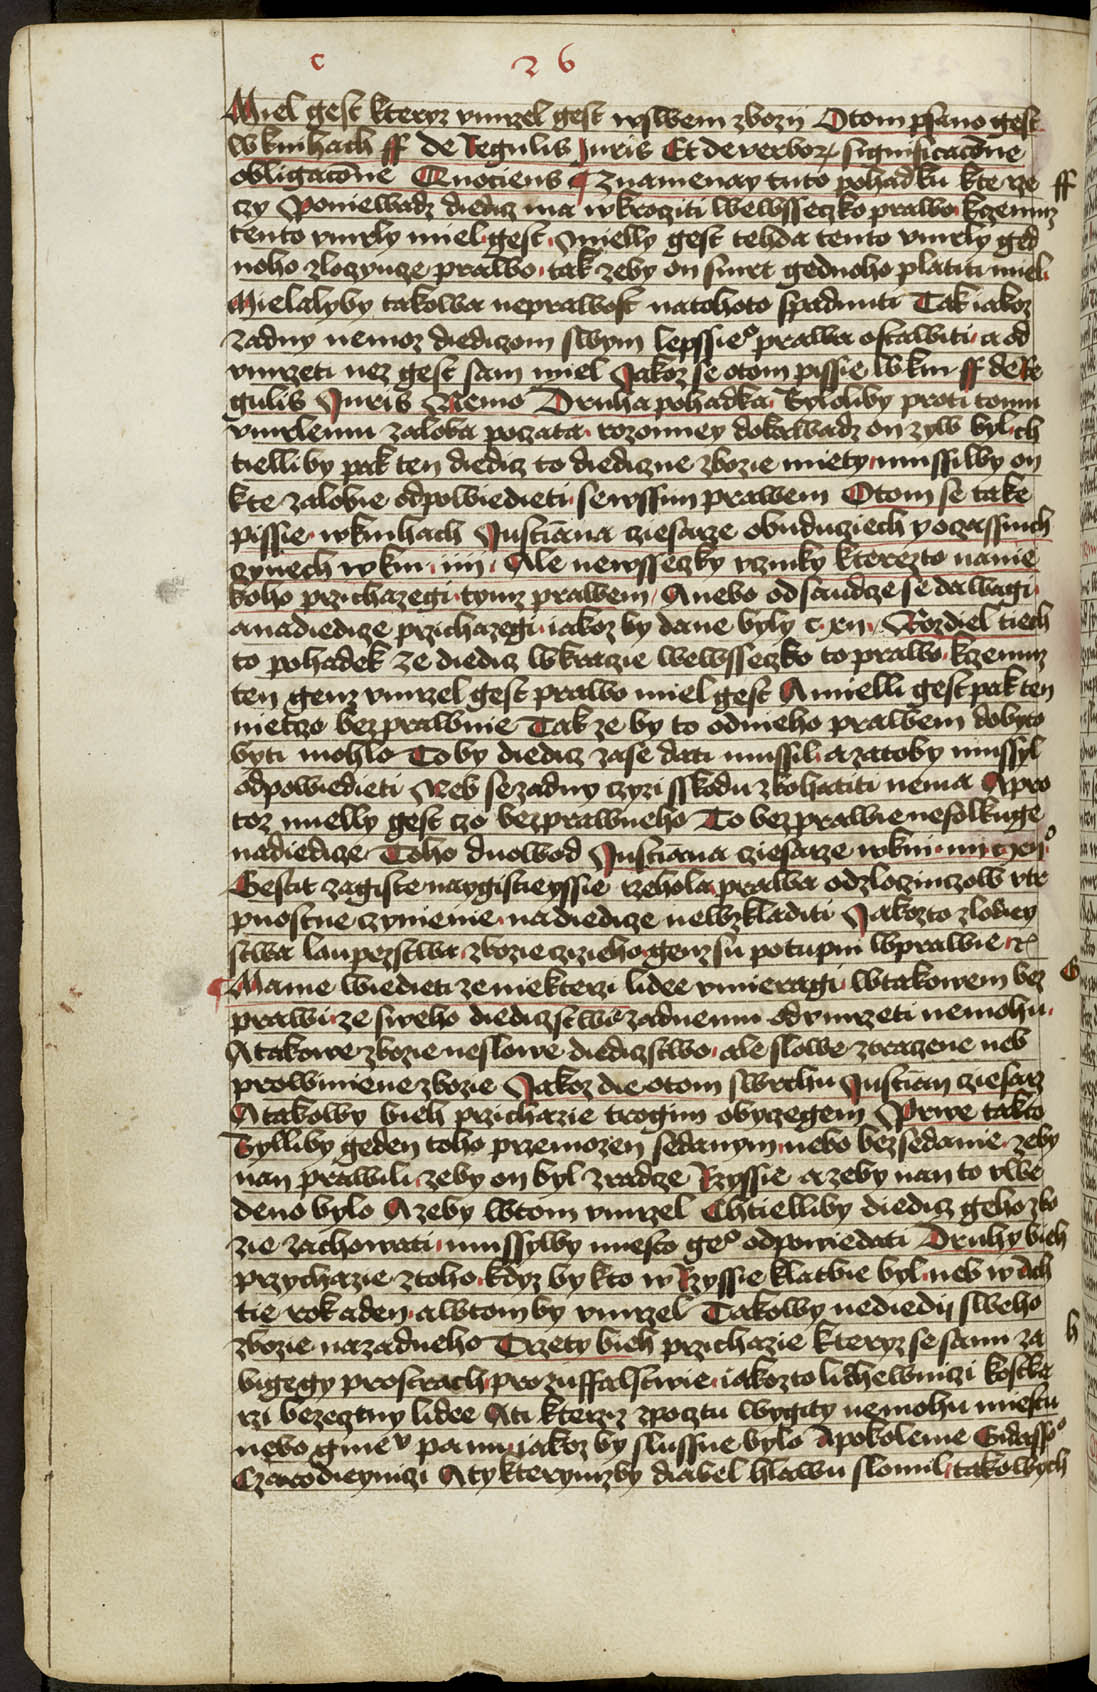 c 26
Miel gest kteryz vmrzel gest wswem zbozij Otom psano gest
Wknihach ff de Regulis Juris Et de verborum significacione
obligacione Quociens Znamenay tuto pohadku kterze
ff
czy Poniewadz diedicz ma wkrocziti wewsseczko prawo kczemuz
tento vmrly miel gest. Mielly gest tehda tento vmrly ged
noho zloczyncze prawo, tak zeby on smrt gednoho platiti miel.
Mielalyby takowa neprawost natohoto spadnuti Tak iakoz
Zadny nemoz diediczom swym lepssieo prawa ostawiti a od
vmrzeti nez gest sam miel Jakoz se otom pissie wkni ff de Re
gulis Juris Nemo Druha pohadka, Byloliby proti tomu
vmrlemu zaloba poczata, rozomiey dokawadz on zyw byl, ch
tielliby pak ten diedicz to diediczne zbozie miety, mussilby on
kte zalobie odpowiedieti, sewssim prawem Otom se take
pissie, wknihach Justiana cziesarze obuducziech y oczassnich
czynech wkni, iiij, Ale newsseczky vczinky kterezto namie
koho przichazegi, tymz prawem, Anebo odsaudcze se dawagi
anadiedicze przichazegi, iakoz by dane byly c. xij, Rozdiel tiech
to pohadek ze diedicz wkraczie wewsseczko to prawo, kczemuz
ten genz vmrzel gest prawo miel gest Amielli gest pak ten
nietczo bezprawnie Tak ze by to odnieho prawem dobyto
byti mohlo To by diedicz zase dati mussil, azatoby mussyl
odpowiedieti Neb sezadny czyzi sskodu zbohatiti nema Apro
toz mielly gest czo bezprawneho To bezprawie nesolkuge
nadiedicze Toho duowod Justiana cziesarze wkni, iiij
Gestit zagiste naygistieyssie rzehola, prawa odzloczinczow vtr
pnostne czynienie, nadiedicze newzkladiti Jakozto zlodiey
stwa lauperzstwa, zbozie czizieho, genz su potupni wprawie
Mame wiedieti ze niekterzi lidee vmieragi, wtakowem bez
G
prawi, ze sweho diediczstwo zadnemu odvmrzeti nemohu,
Atakowe zbozie neslowe diediczstwo, ale slowe ztracene neb
prowiniene zbozie Jakoz die otom swrchu Justian cziesarz
Atakowy bieh przichazie trogim obyczegem Prwe takto
Bylliby geden toho przemozen sedanym nebo bezsedanie, zeby
nan prawili, zeby on byl zradcze Rzyssie azeby nan to vwe
deno bylo Azeby wtom vmrzel Chtielliby diedicz geho zbo
zie zachowati, mussylby miesto geo odpowiedati Druhy bieh
przychazie, ztoho, kdyz by kto w Rzyssie klatbie byl, neb w dch
tie rok aden, awtom by vmrzel Takowy nediedij sweho
zbozie nazadneho Trzety bieh przichazie kteryz se sami za
h
bigegy prostrach, prozuffalstwie, iakozto lichewniczi kostka
rzi bezecztny lidee Ati kterziz zpocztu wygity nemohu miestu
nebo panu, iakoz by slussne bylo Apokolenie Gidasso
Czarodieyniczi Aty kterymzby diabel hlawu slomil, takowych